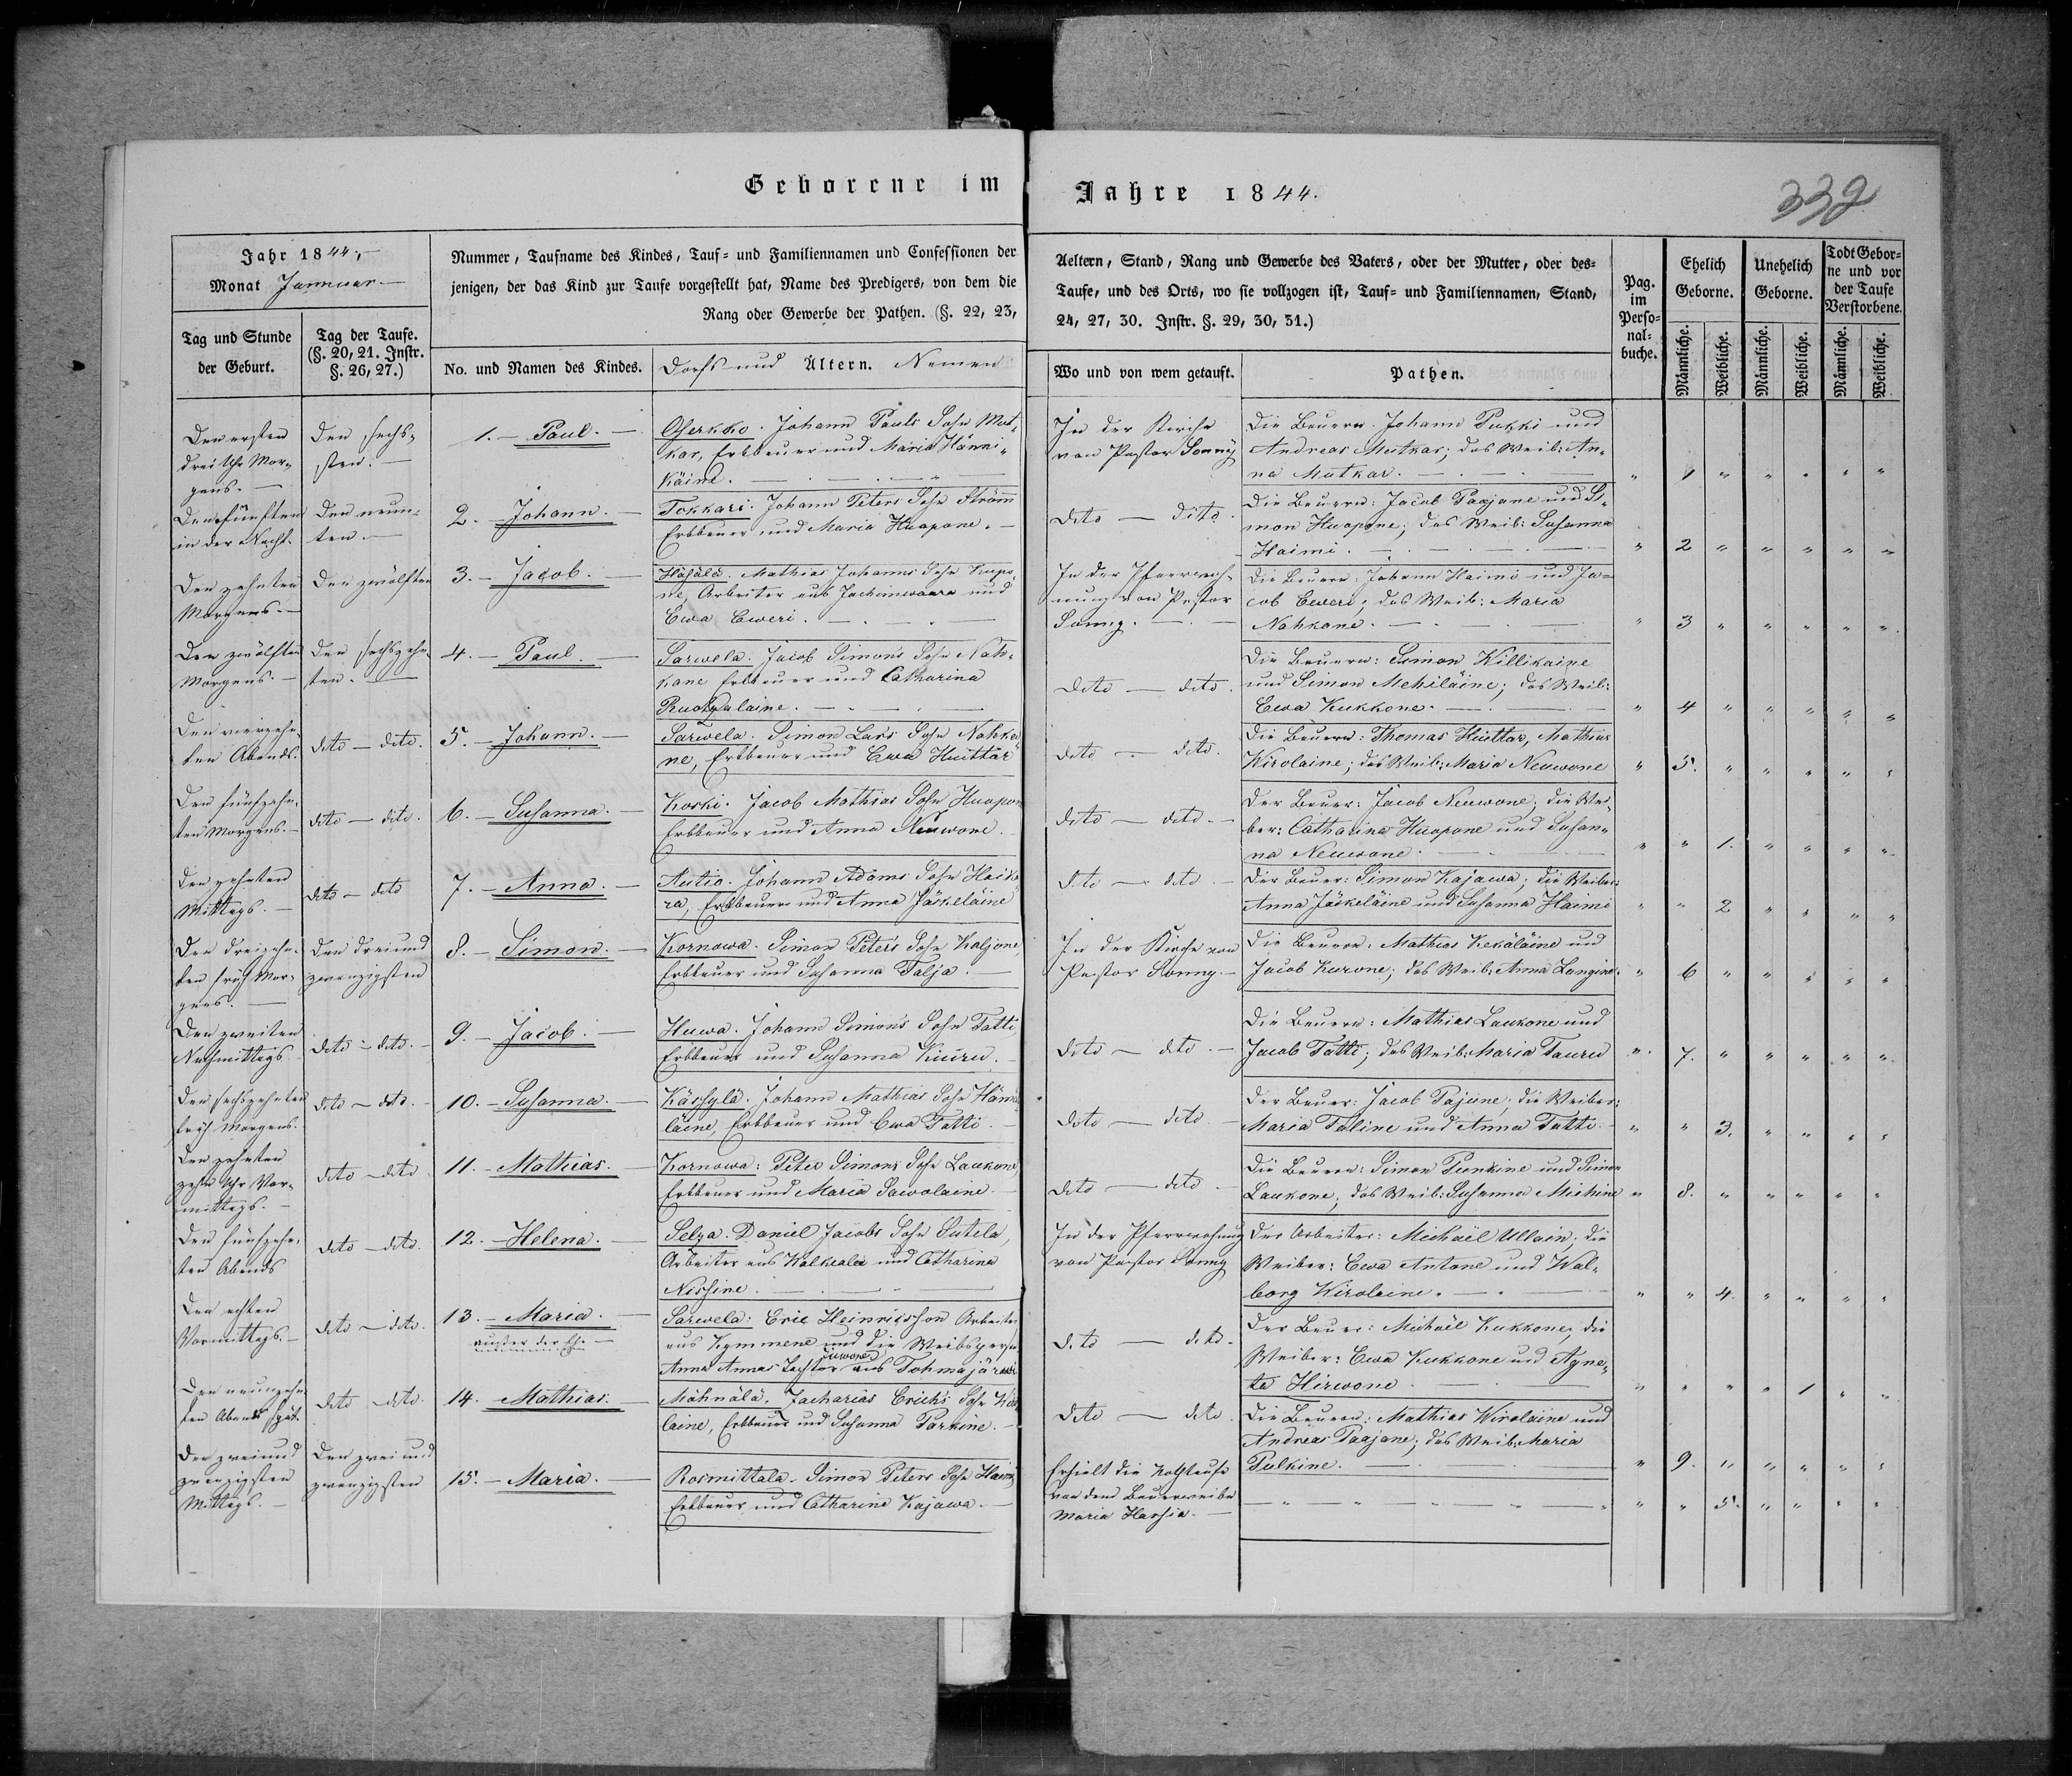 Geborene im Jahre 1844.
339
Jahr 1844.
Monat Januar
Tag und Stunde
der Geburt.
Tag der Taufe.
(§. 20, 21. Instr.
§. 26, 27.)
Nummer, Taufname des Kindes, Tauf- und Familiennamen und Confessionen der
jenigen, der das Kind zur Taufe vorgestellt hat, Name des Predigers, von dem die
Rang oder Gewerbe der Pathen. (§. 22, 23,
No. und Namen des Kindes.
Dorfs und Ältern. Namen
Aeltern, Stand, Rang und Gewerbe des Vaters, oder der Mutter, oder des-
Taufe, und des Orts, wo sie vollzogen ist, Tauf- und Familiennamen, Stand,
24, 27, 30. Instr. §. 29, 30, 31.)
Wo und von wem getauft.
Pathen.
Pag.
im
Perso-
nal-
buche.
Ehelich
Geborne.
Unehelich
Geborne.
Todt Gebor-
ne und vor
der Taufe
Verstorbene.
Männliche.
Weibliche.
Männliche.
Weibliche.
Männliche.
Weibliche.
Den ersten
drei Uhr Mor-
gens.
Den sechs-
sten.
1. Paul.
Oserkko. Johann Pauls Sohn Mut-
kar, Erbbauer und Maria Hänni-
käine.
In der Kirche
von Pastor Sonny
Die Bauern: Johann Pukki und
Andreas Mutkar; das Weib: An-
na Mutkar.
1
Den fünften
in der Nacht.
Den neun-
ten.
2. Johann.
Tokkari. Johann Peters Sohn Strömm
Erbbauer und Maria Huopone.
dito dito.
Die Bauern: Jacob Paajane und Si-
mon Huopone; das Weib: Susanna
Haimi.
2
Den zehnten
Morgens.
Den zwölften
3. Jacob.
Mathias Johanns Sohn
ne, Arbeiter aus Jachimwaara und
Ewa Eweri.
In der Pfarrwoh-
nung von Pastor
Sonny.
Die Bauern: Johann Haimi und Ja-
cob Eweri; das Weib: Maria
Nahkane.
3
Den zwölften
Morgens.
Den sechszehn-
ten.
4. Paul.
Sarwela. Jacob Simons Sohn Nah-
kane Erbbauer und Catharina
dito dito.
Die Bauern: Simon Killikaine
und Simon Mehiläine; das Weib:
Ewa Kukkone.
4
Den vierzehn-
ten Abends.
dito dito.
5. Johann.
Sarwela. Simon Lars Sohn Nahka
ne, Erbbauer und Ewa Huittar
dito dito.
Die Bauern: Thomas Huittar, Mathias
Kirolaine; das Weib: Maria Neuwone
5.
Den fünfzehn-
ten Morgens.
dito dito.
6. Susanna.
Koski. Jacob Mathias Sohn Huopon
Erbbauer und Anna Neuwone.
dito dito.
Der Bauer: Jacob Neuwone; die Wei-
ber: Catharina Huopone und Susan-
na Neuwone.
1.
Den zehnten
Mittags.
dito dito
7. Anna.
Autio. Johann Adams Sohn Haik
ra, Erbbauer und Anna Jäskeläine
dito dito.
Der Bauer: Simon Kajawa; die Weiber:
Anna Jäskeläine und Susanna Haimi
2
Den dreizehn-
ten früh Mor-
gens.
Den dreiund
zwanzigsten
8. Simon.
Kornowa. Simon Peters Sohn Kaljone,
Erbbauer und Susanna Talja.
In der Kirche von
Pastor Sonny.
Die Bauern: Mathias Kekäläine und
Jacob Kurone; das Weib: Anna Langine.
6
Den zweiten
Nachmittags
dito dito.
9. Jacob.
Huwa. Johann Simons Sohn Tatti,
Erbbauer und Susanna Kiuru.
dito dito.
Die Bauern: Mathias Laukone und
Jacob Tatti; das Weib: Maria Tauru
7.
Den sechszehnten
früh Morgens.
dito dito.
10. Susanna.
Kässylä. Johann Mathias Sohn Hämä
läine, Erbbauer und Ewa Tatti.
dito dito.
Der Bauer: Jacob Pajune; die Weiber:
Maria Taline und Anna Tatti.
3.
Den zehnten
zehn Uhr Vor-
mittags.
dito dito
11. Mathias.
Kornowa: Peter Simons Sohn Laukone
Erbbauer und Maria Sawolaine.
dito dito.
Die Bauern: Simon Punkine und Simon
Laukone; das Weib: Susanna Miehine
8.
Den fünfzehn-
ten Abends
dito dito.
12. Helena.
Selza. Daniel Jacobs Sohn Sutela,
Arbeiter aus Walkeala und Catharina
Nissine.
In der Pfarrwohnung
von Pastor Sonny
Der Arbeiter: Michaël Ullain; die
Weiber: Ewa Antane und Wal-
borg Kirolaine.
4.
Den achten
Vormittags.
dito dito.
13. Maria.
außer der Ehe.
Sarwela: Eric Heinricsson Arbeiter
aus Kymmene und die Weibsperson
Anna Annas Tochter aus Tohmajärwi
dito dito.
Der Bauer: Michaël Kukkone; die
Weiber: Ewa Kukkone und Agne-
ta Hirwone
1
Den neunzehn-
ten Abends spät.
dito dito.
14. Mathias.
Möhnälä. Zacharias Erichs Sohn
laine, Erbbauer und Susanna Parkine.
dito dito.
Die Bauern: Mathias Wirolaine und
Andreas Paajane; das Weib: Maria
Pulkine.
9.
Den zweiund
zwanzigsten
Mittags.
Den zweiund
zwanzigsten
15. Maria.
Rosmittala. Simon Peters Sohn Haimi
Erbbauer und Catharina Kajawa.
Erhielt die Nothtaufe
von dem Bauernweibe
Maria Harsia.
5.